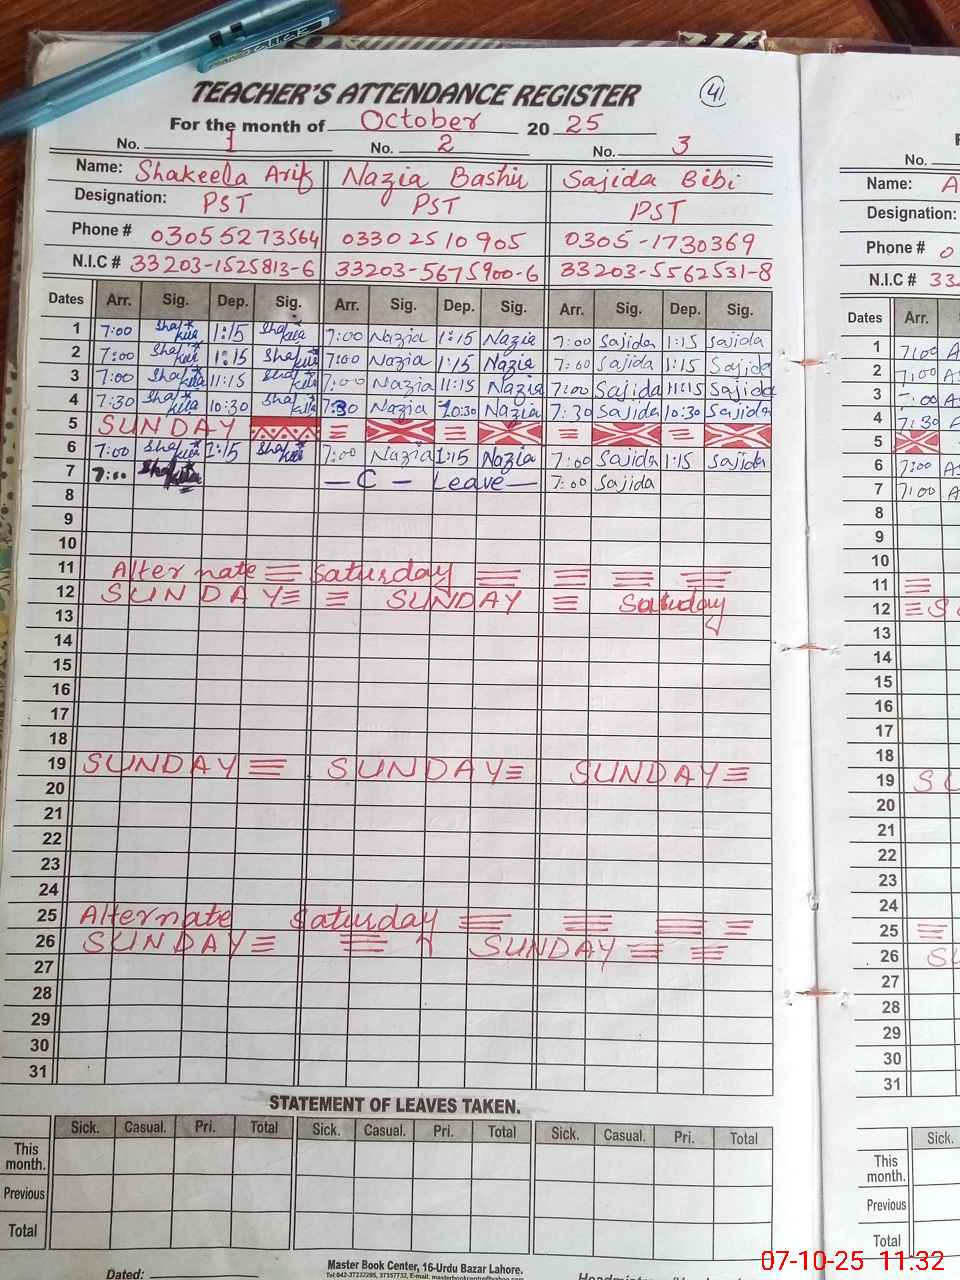 TEACHER'S ATTENDANCE REGISTER
41
For the month of October 20 25
No. 1 No. 2 No. 3
Name: Shakeela Arif Nazia Bashir Sajida Bibi
Designation: PST PST PST
Phone # 03055273564 0330 2510905 0305-1730369
N.I.C # 33203-1525813-6 33203-5675900-6 33203-5562531-8
Dates Arr. Sig. Dep. Sig. Arr. Sig. Dep. Sig. Arr. Sig. Dep. Sig.
1 7:00 Shakila 1:15 Shakila 7:00 Nazia 1:15 Nazia 7:00 Sajida 1:15 Sajida
2 7:00 Shakila 1:15 Shakila 7:00 Nazia 1:15 Nazia 7:00 Sajida 1:15 Sajida
3 7:00 Shakila 11:15 Shakila 7:00 Nazia 11:15 Nazia 7:00 Sajida 11:15 Sajida
4 7:30 Shakila 10:30 Shakila 7:30 Nazia 10:30 Nazia 7:30 Sajida 10:30 Sajida
5 SUNDAY
6 7:00 Shakila 1:15 Shakila 7:00 Nazia 1:15 Nazia 7:00 Sajida 1:15 Sajida
7 7:00 Shakila — C — Leave — 7:00 Sajida
8
9
10
11 Alternate Saturday
12 SUNDAY SUNDAY Saturday
13
14
15
16
17
18
19 SUNDAY SUNDAY SUNDAY
20
21
22
23
24
25 Alternate Saturday
26 SUNDAY SUNDAY
27
28
29
30
31
STATEMENT OF LEAVES TAKEN.
Sick. Casual. Pri. Total Sick. Casual. Pri. Total Sick. Casual. Pri. Total
This month.
Previous
Total
Dated:
Master Book Center, 16-Urdu Bazar Lahore.
No.
Name: A
Designation:
Phone # 0
N.I.C # 332
Dates Arr.
1 7:00 A
2 7:00 A
3 7:00 A
4 7:30 A
5
6 7:00 A
7 7:00 A
8
9
10
11
12 S
13
14
15
16
17
18
19 SU
20
21
22
23
24
25
26 SU
27
28
29
30
31
Sick.
This month.
Previous
Total
07-10-25 11:32